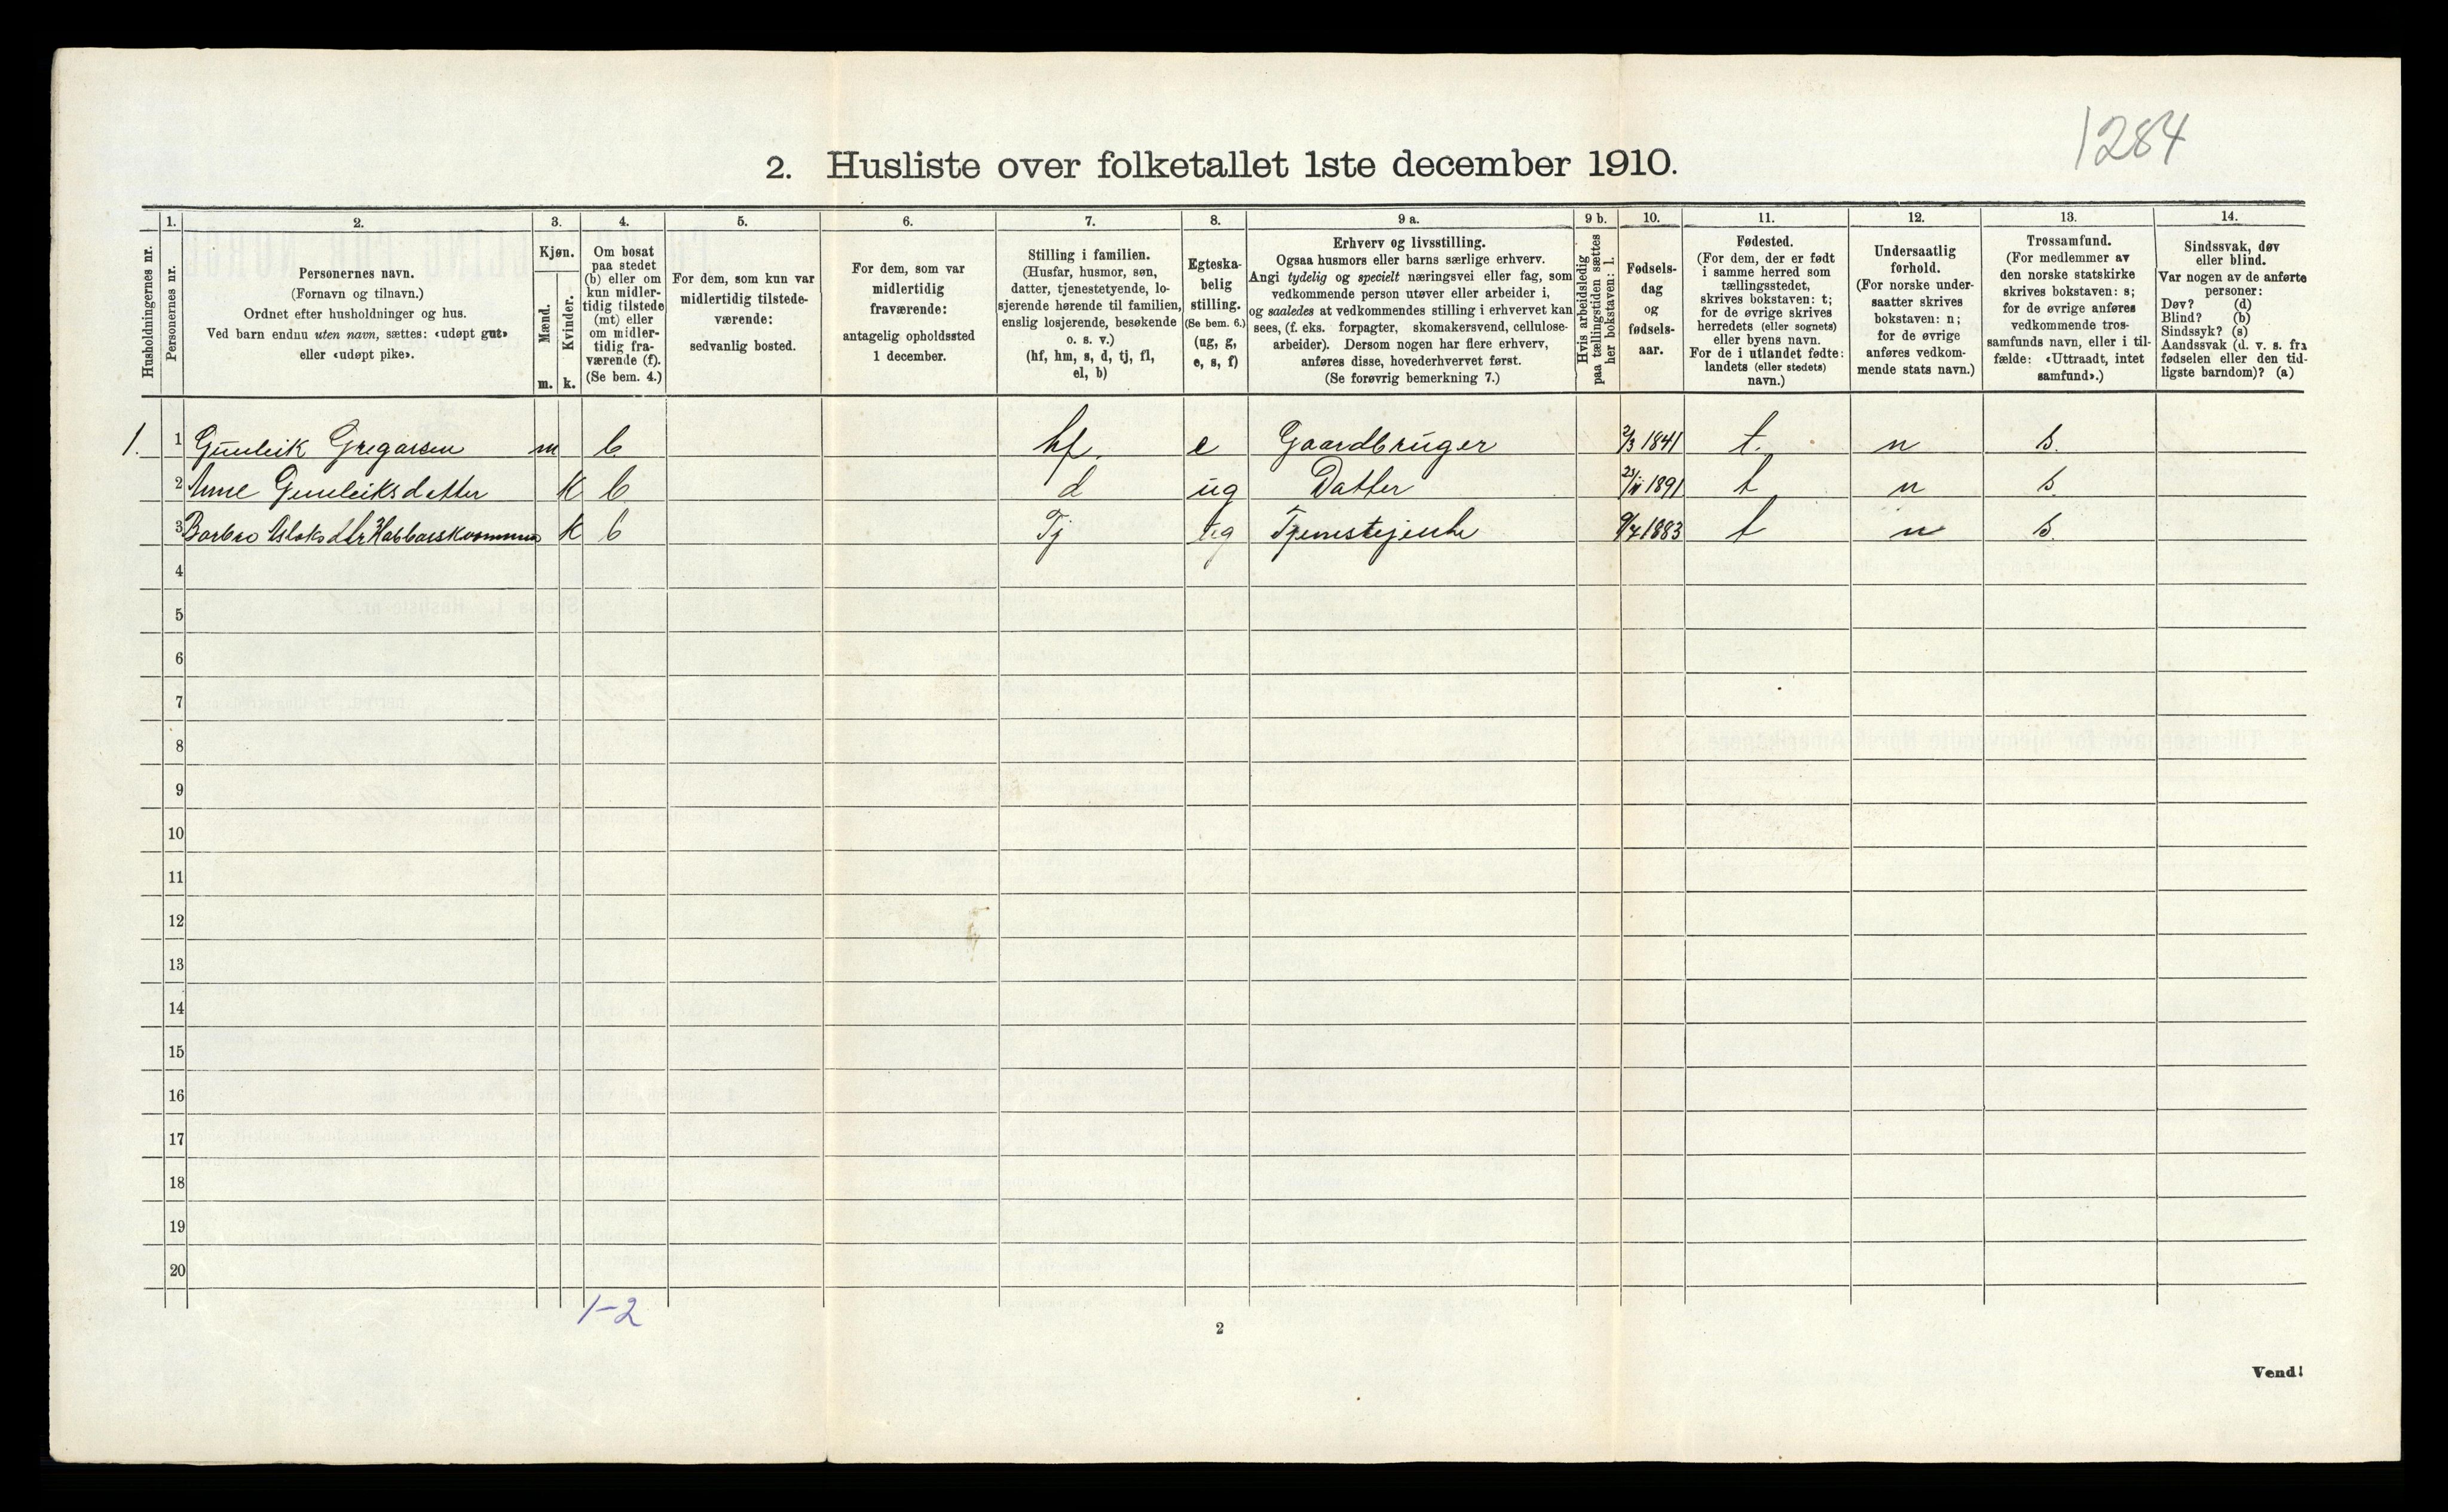 1284
2. Husliste over folketallet 1ste december 1910.
Husholdningernes nr.
1.
Personernes nr.
2.
Personernes navn.
(Fornavn og tilnavn.)
Ordnet efter husholdninger og hus.
Ved barn endnu uten navn, sættes: «udøpt gut»
eller «udøpt pike».
3.
Kjøn.
Mænd.
Kvinder.
m. k.
4.
Om bosat
paa stedet
(b) eller om
kun midler-
tidig tilstede
(mt) eller
om midler-
tidig fra-
værende (f).
(Se bem. 4.)
5.
For dem, som kun var
midlertidig tilstede-
værende:
sedvanlig bosted.
6.
For dem, som var
midlertidig
fraværende:
antagelig opholdssted
1 december.
7.
Stilling i familien.
(Husfar, husmor, søn,
datter, tjenestetyende, lo-
sjerende hørende til familien,
enslig losjerende, besøkende
o. s. v.)
(hf, hm, s, d, tj, fl,
el, b)
8.
Egteska-
belig
stilling.
(Se bem. 6.)
(ug, g,
e, s, f)
9 a.
Erhverv og livsstilling.
Ogsaa husmors eller barns særlige erhverv.
Angi tydelig og specielt næringsvei eller fag, som
vedkommende person utøver eller arbeider i,
og saaledes at vedkommendes stilling i erhvervet kan
sees, (f. eks. forpagter, skomakersvend, cellulose-
arbeider). Dersom nogen har flere erhverv,
anføres disse, hovederhvervet først.
(Se forøvrig bemerkning 7.)
9 b.
Hvis arbeidsledig
paa tællingstiden sættes
her bokstaven: l.
10.
Fødsels-
dag
og
fødsels-
aar.
11.
Fødested.
(For dem, der er født
i samme herred som
tællingsstedet,
skrives bokstaven: t;
for de øvrige skrives
herredets (eller sognets)
eller byens navn.
For de i utlandet fødte:
landets (eller stedets)
navn.)
12.
Undersaatlig
forhold.
(For norske under-
saatter skrives
bokstaven: n;
for de øvrige
anføres vedkom-
mende stats navn.)
13.
Trossamfund.
(For medlemmer av
den norske statskirke
skrives bokstaven: s;
for de øvrige anføres
vedkommende tros-
samfunds navn, eller i til-
fælde: «Uttraadt, intet
samfund».)
14.
Sindssvak, døv
eller blind.
Var nogen av de anførte
personer:
Døv? (d)
Blind? (b)
Sindssyk? (s)
Aandssvak (d. v. s. fra
fødselen eller den tid-
ligste barndom)? (a)
1. 1 Gunleik Gregarsen m b. hf. e Gaardbruger 2/3 1841 t. n s.
2 Anne Gunleiksdatter k b d ug Datter 1891 t n s.
3 Barbro Asloksdtr k b Tj ug Tjenstejente 9/7 1883 t n s.
4
5
6
7
8
9
10
11
12
13
14
15
16
17
18
19
20
1-2
2
Vend!